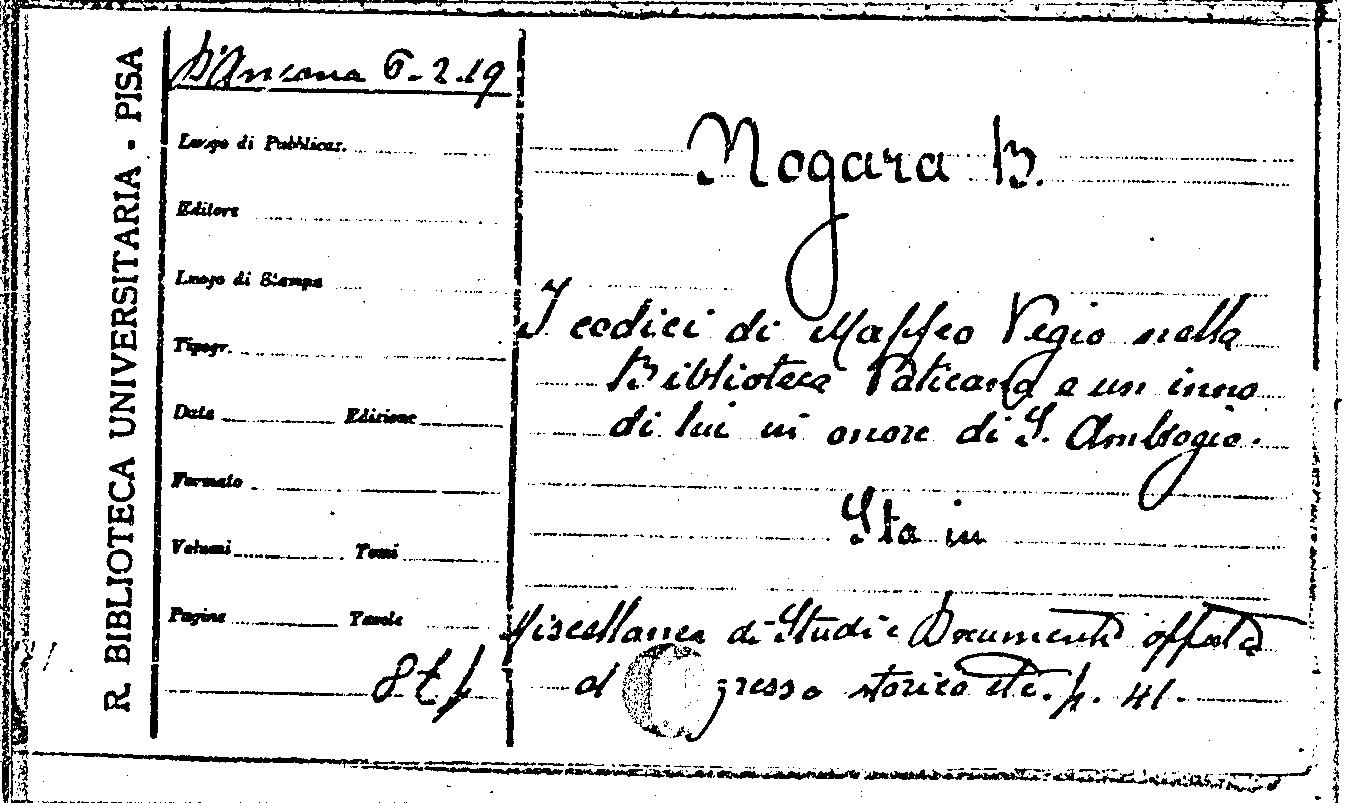 R. BIBLIOTECA UNIVERSITARIA - PISA
D'Ancona 6-2.19
Luogo di Pubblicaz.
Editore
Luogo di Stampa
Tipogr.
Data Edizione
Formato
Volumi Tomi
Pagine Tavole
Nogara B.
I codici di Maffeo Vegio nella
Biblioteca Vaticana e un inno
di lui in onore di S. Ambrogio.
Sta in
Miscellanea di Studi e Documenti offerta
al gresso storico etc. p. 41.